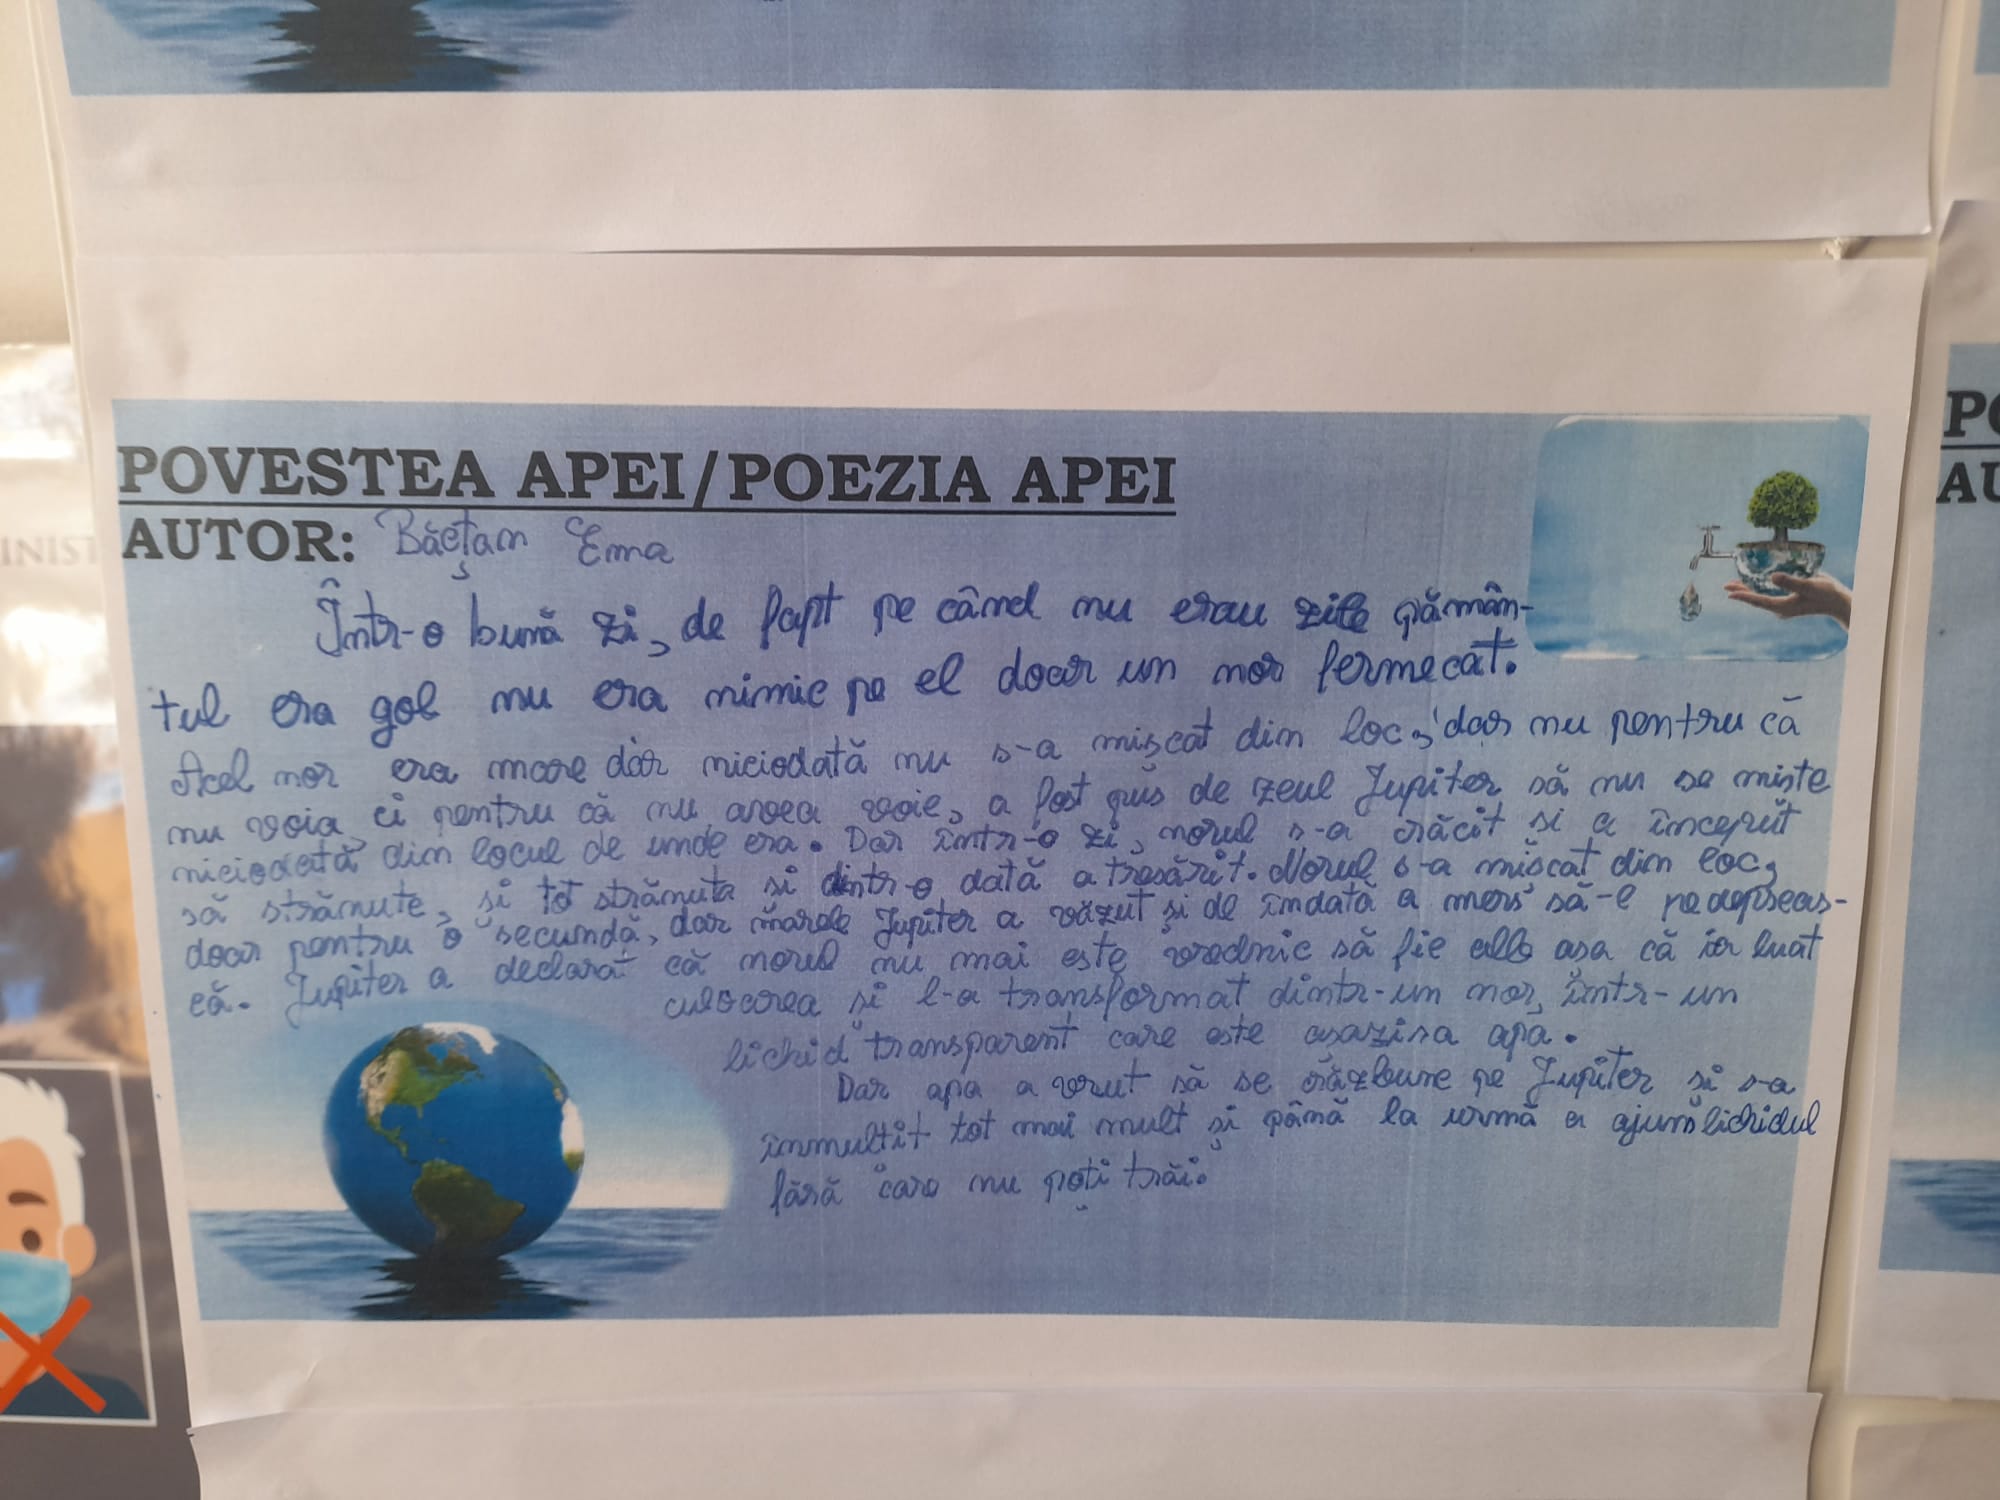 POVESTEA APEI/POEZIA APEI
AUTOR: Băețan Ema
Într-o bună zi, de fapt pe când nu erau zile pămân-
tul era gol nu era nimic pe el doar un nor fermecat.
Acel nor era mare dar niciodată nu s-a mișcat din loc, dar nu pentru că
nu voia ci pentru că nu avea voie, a fost pus de zeul Jupiter să nu se miște
niciodată din locul de unde era. Dar într-o zi, norul s-a răcit și a început
să strănute, și tot strănuta și dintr-o dată a tresărit. Norul s-a mișcat din loc,
doar pentru o secundă, dar marele Jupiter a văzut și de îndată a mers să-l pedepseas-
că. Jupiter a declarat că norul nu mai este vrednic să fie alb așa că ia luat
culoarea și l-a transformat dintr-un nor, într-un
lichid transparent care este așazisa apă.
Dar apa a vrut să se răzbune pe Jupiter și s-a
înmultit tot mai mult și până la urmă a ajuns lichidul
fără care nu poți trăi.
INIST
PO
AU